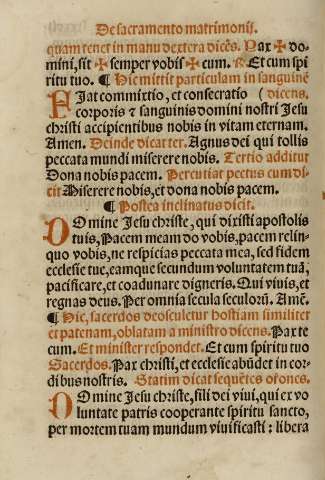 De sacramento matrimonii.
quam tenet in manu dextera dicēs. Pax ✠ do-
mini, sit ✠ semper vobis ✠ cum. ℟. Et cum spi
ritu tuo. ¶ Hic mittit particulam in sanguinē
FIat commixtio, et consecratio ( dicens.
corporis & sanguinis domini nostri Jesu
christi accipientibus nobis in vitam eternam.
Amen. Deinde dicat ter. Agnus dei qui tollis
peccata mundi miserere nobis. Tertio additur
Dona nobis pacem. Percutiat pectus cum di-
cit Miserere nobis, et dona nobis pacem.
¶ Postea inclinatus dicit.
DOmine Jesu christe, qui dixisti apostolis
tuis, Pacem meam do vobis, pacem relin-
quo vobis, ne respicias peccata mea, sed fidem
ecclesie tue, eamque secundum voluntatem tuā,
pacificare, et coadunare digneris. Qui viuis, et
regnas deus. Per omnia secula seculorū. Amē.
¶ Hic, sacerdos deosculetur hostiam similiter
et patenam, oblatam a ministro dicens. Pax te
cum. Et minister respondet. Et cum spiritu tuo
Sacerdos. Pax christi, et ecclesie abūdet in cor-
dibus nostris. Statim dicat sequētes orones.
DOmine Jesu christe, fili dei viui, qui ex vo
luntate patris cooperante spiritu sancto,
per mortem tuam mundum viuificasti : libera